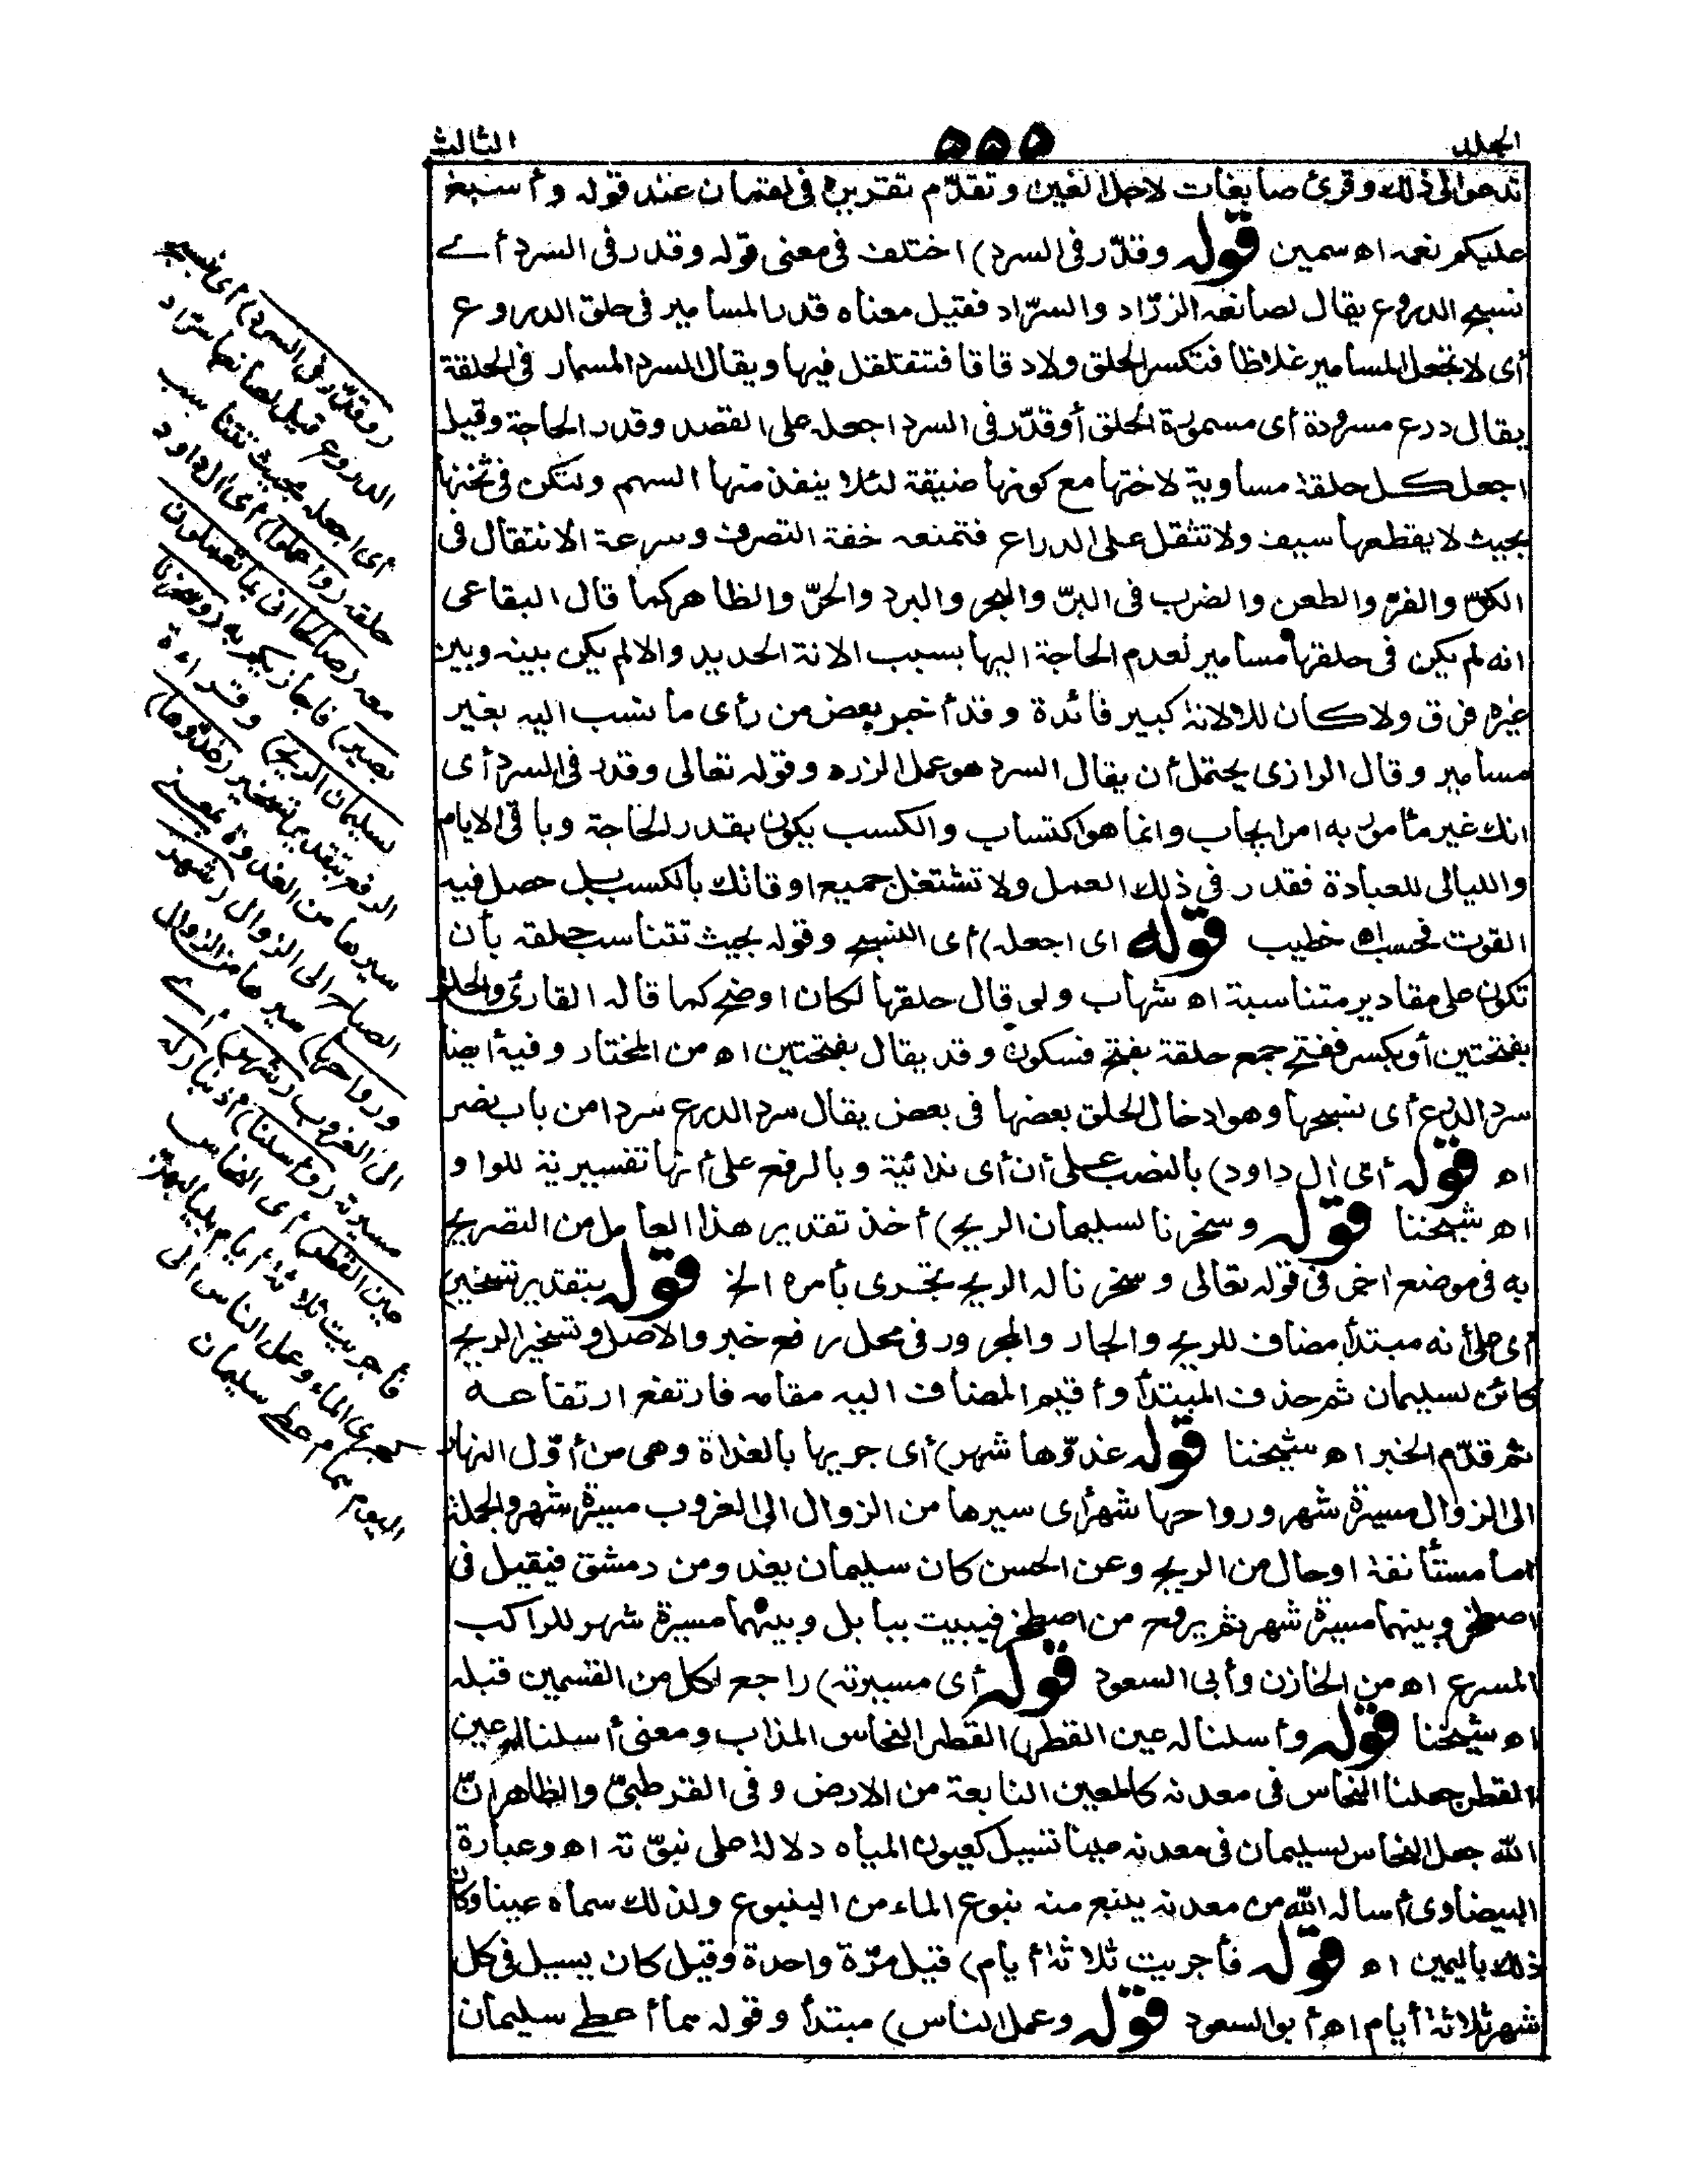 المجلد
٥٥٥
الثالث
تدعو الى ذلك وقرئ صابغات لاجل الغين وتقدّم تقريره فى لقمان عند قوله وأسبغ
عليكم نعمه اه سمين قوله وقدّر فى السرد) اختلف فى معنى قوله وقدر فى السرد أى
نسج الدروع يقال لصانعه الزرّاد والسرّاد فقيل معناه قدر المسامير فى حلق الدروع
أى لا تجعل المسامير غلاظا فتكسر الحلق ولا دقاقا فتتقلقل فيها ويقال السرد المسمار فى الحلقة
يقال درع مسرودة أى مسمورة الحلق أو قدّر فى السرد اجعله على القصد وقدر الحاجة وقيل
اجعل كل حلقة مساوية لاختها مع كونها ضيقة لئلا ينفذ منها السهم ولتكن فى ثخنها
بحيث لا يقطعها سيف ولا تثقل على الدراع فتمنعه خفة التصرف وسرعة الانتقال فى
الكرّ والفرّ والطعن والضرب فى البرّ والبحر والبرد والحرّ والظاهر كما قال البقاعى
انه لم يكن فى حلقها مسامير لعدم الحاجة اليها بسبب الانة الحديد والا لم يكن بينه وبين
غيره فرق ولا كان للالانة كبير فائدة وقد أخبر بعض من رأى ما نسب اليه بغير
مسامير وقال الرازى يحتمل أن يقال السرد هو عمل الزرد وقوله تعالى وقدر فى السرد أى
انك غير مأمور به امر ايجاب وانما هو اكتساب والكسب يكون بقدر الحاجة وباقى الايام
والليالى للعبادة فقدر فى ذلك العمل ولا تشتغل جميع اوقاتك بالكسب بل حصل فيه
القوت فحسب اه خطيب قوله اى اجعله) أى النسج وقوله بحيث تتناسب حلقه بأن
تكون على مقادير متناسبة اه شهاب ولو قال حلقها لكان اوضح كما قاله القارئ والحلق
بفتحتين أو بكسر ففتح جمع حلقة بفتح فسكون وقد يقال بفتحتين اه من المختار وفيه أيضا
سرد الدرع أى نسجها وهو ادخال الحلق بعضها فى بعض يقال سرد الدرع سردا من باب نصر
اه قوله أى آل داود) بالنصب على أن أى ندائية وبالرفع على أنها تفسيرية للواو
اه شيخنا قوله وسخرنا لسليمان الريح) أخذ تقدير هذا العامل من التصريح
به فى موضع اخر فى قوله تعالى وسخرنا له الريح تجرى بأمره الخ قوله بتقدير تسخير)
أى على أنه مبتدأ مضاف للريح والجار والمجرور فى محل رفع خبر والاصل وتسخير الريح
كائن لسليمان ثم حذف المبتدأ وأقيم المضاف اليه مقامه فارتفع ارتفاعه
ثم قدّم الخبر اه شيخنا قوله غدوّها شهر) أى جريها بالغداة وهى من أوّل النهار
الى الزوال مسيرة شهر ورواحها شهر أى سيرها من الزوال الى الغروب مسيرة شهر والجملة
اما مستأنفة او حال من الريح وعن الحسن كان سليمان يغدو من دمشق فيقيل فى
اصطخر وبينهما مسيرة شهر ثم يروح من اصطخر فيبيت ببابل وبينهما مسيرة شهر للراكب
المسرع اه من الخازن وأبى السعود قوله أى مسيرته) راجع لكل من القسمين قبله
اه شيخنا قوله وأسلنا له عين القطر) القطر النحاس المذاب ومعنى أسلنا له عين
القطر جعلنا النحاس فى معدنه كالعين النابعة من الارض وفى القرطبىّ والظاهر انّ
الله جعل النحاس لسليمان فى معدنه عينا تسيل كعيون المياه دلالة على نبوّته اه وعبارة
البيضاوى أساله الله من معدنه ينبع منه نبوع الماء من الينبوع ولذلك سماه عينا وكان
ذلك باليمن اه قوله فأجريت ثلاثة أيام) قيل مرّة واحدة وقيل كان يسيل فى كل
شهر ثلاثة أيام اه أبو السعود قوله وعمل الناس) مبتدأ وقوله مما أعطى سليمان
(وقدّر فى السرد) أى نسج
الدروع قيل لصانعها سرّاد
أى اجعله بحيث تتناسب
حلقه (واعملوا) أى آل داود
معه (صالحا انى بما تعملون
بصير) فاجازيكم به (و) سخرنا
(لسليمان الريح) وقراءة
الرفع بتقدير تسخير (غدوّها)
سيرها من الغدوة بمعنى
الصباح الى الزوال (شهر
ورواحها) سيرها من الزوال
الى الغروب (شهر) أى
مسيرته (وأسلنا) أذبنا (له
عين القطر) أى النحاس
فأجريت ثلاثة أيام بلياليهن
كجرى الماء وعمل الناس الى
اليوم مما أعطى سليمان